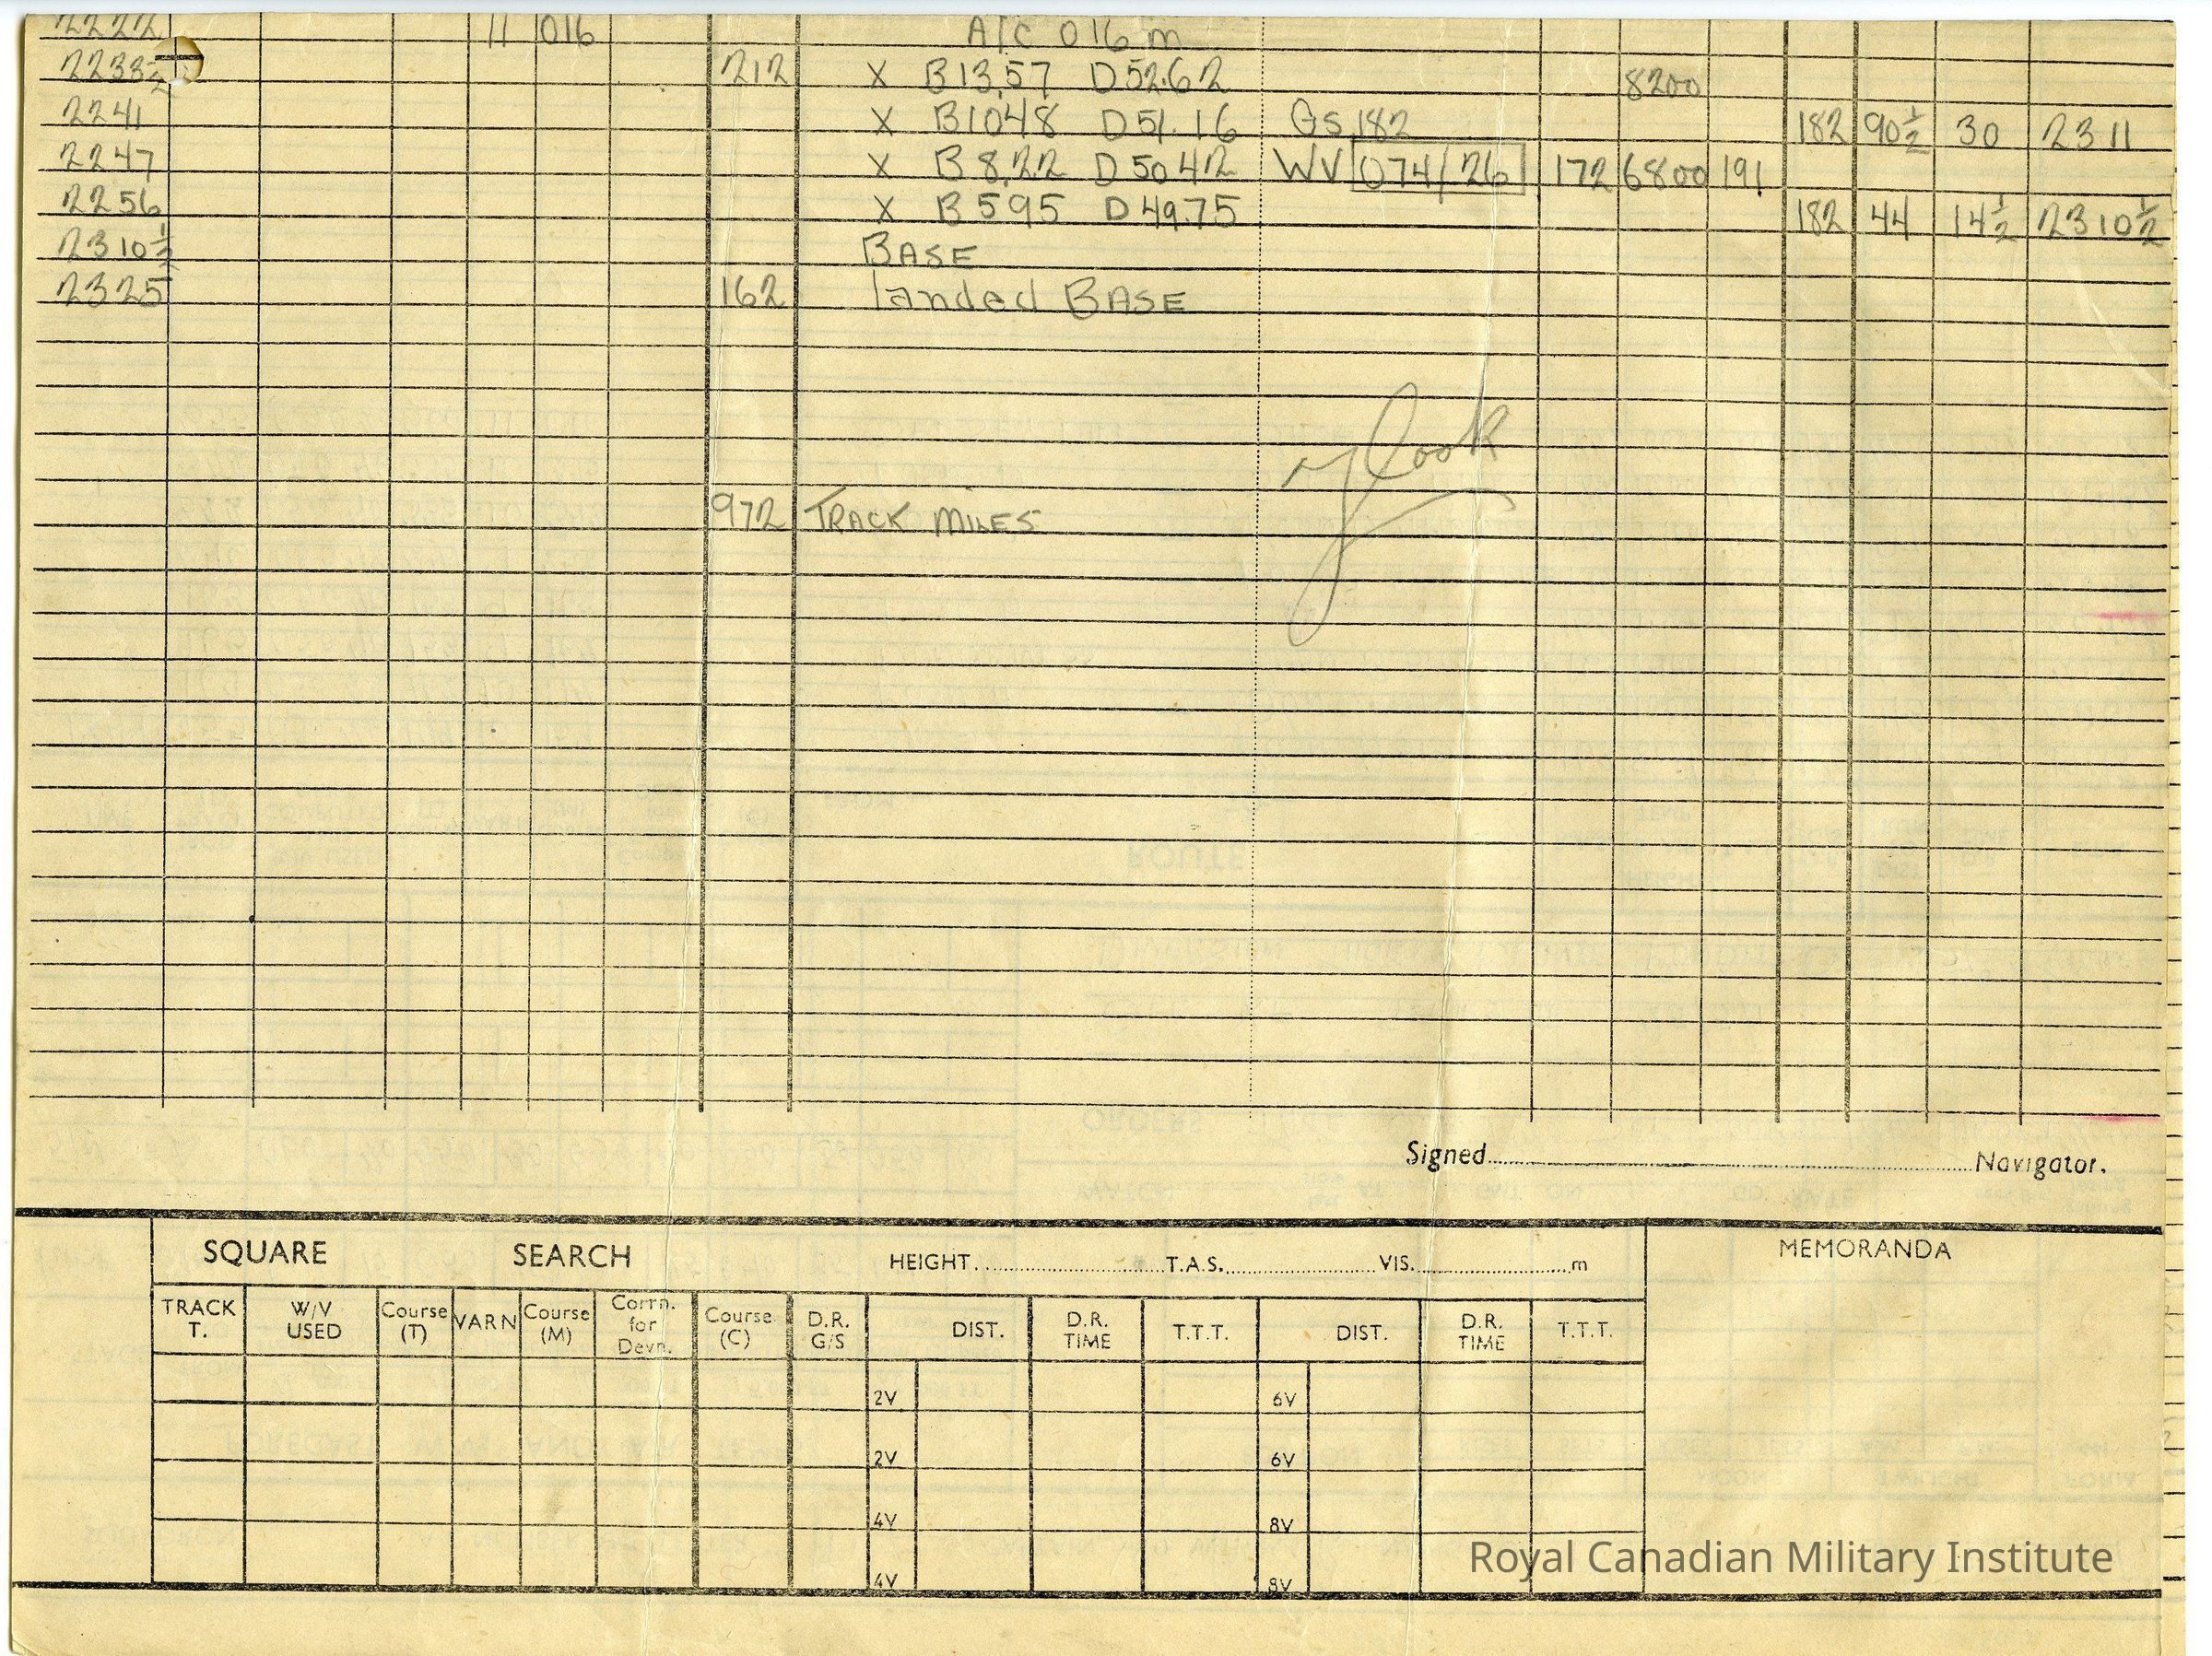 2222 11 016 A/C 016 m
2233½ 212 X B13.57 D52.62 8200
2241 X B1048 D51.16 GS 182 182 90½ 30 2311
2247 X B8.22 D5042 WV 074/26 172 6800 191
2256 X B595 D49.75 182 44 14½ 2310½
2310½ BASE
2325 162 landed BASE
972 TRACK MILES
Signed Navigator.
SQUARE SEARCH HEIGHT T.A.S. VIS. m MEMORANDA
TRACK T. W/V USED Course (T) VARN Course (M) Corrn. for Devn. Course (C) D.R. G/S DIST. D.R. TIME T.T.T. DIST. D.R. TIME T.T.T.
2V 6V
2V 6V
4V 8V
4V 8V
Royal Canadian Military Institute